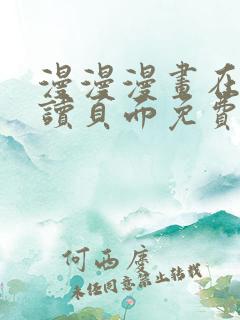 漫漫漫畫在
讀頁面免費
何西度
未经同意禁止转载